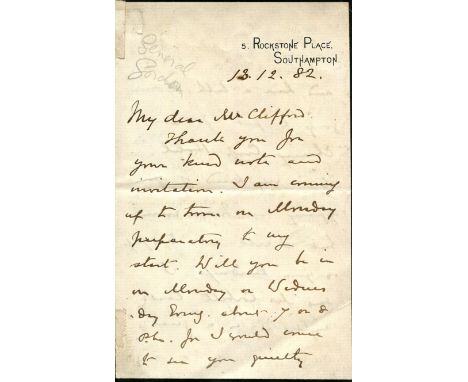 General
Gordon
5. ROCKSTONE PLACE,
SOUTHAMPTON
13.12.82.
My dear Mr Clifford
Thank you for
your kind note and
invitation. I am coming
up to town on Monday
preparatory to my
start. Will you be in
on Monday or Wednes
-day Evng. about 7 or 8
for I could come
to see you quietly